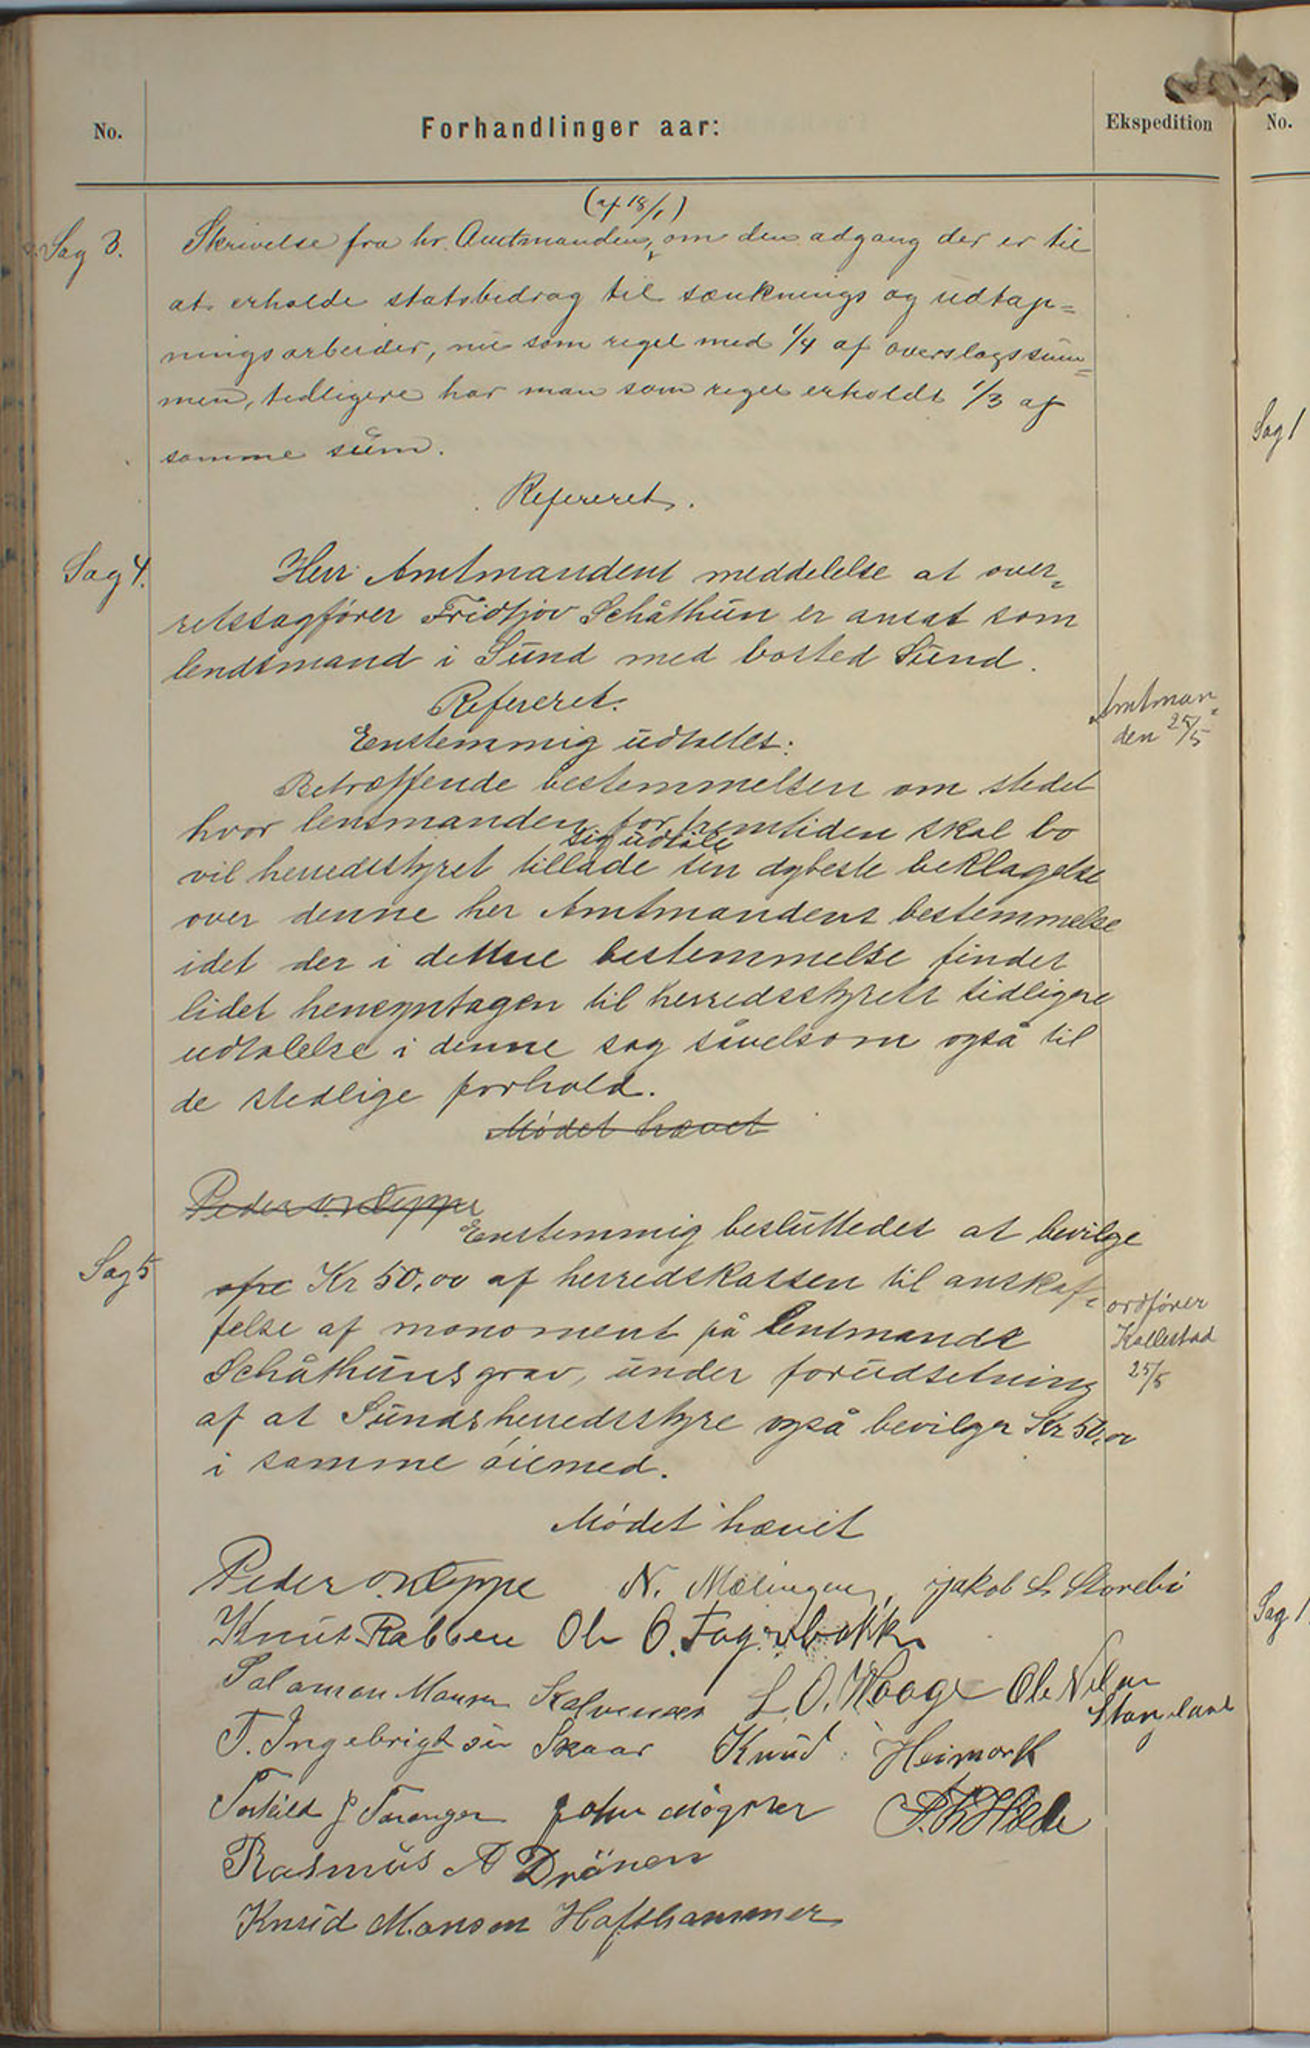 No.
Forhandlinger aar:
Ekspedition
No.
(af 18/1)
Sag 3. Skrivelse fra hr. Amtmanden, om den adgang der er til
at erholde statsbidrag til sænknings og udtap=
ningsarbeider, nu som regel med 1/4 af overslagssum=
men, tidligere har man som regel erholdt 1/3 af
samme sum.
Refereret.
Sag 4. Herr Amtmandens meddelelse at over=
retssagfører Fridtjov Schåthun er ansat som
lendsmand i Sund med bosted Sund.
Refereret.
Enstemmig udtaltes:
Amtman=
den 25/5
Betræffende bestemmelsen om stedet
hvor lensmanden for fremtiden skal bo
sig udtale
vil herredsstyret tillade sin dybeste beklagelse
over denne her Amtmandens bestemmelse
idet der i denne bestemmelse findes
lidet hensyntagen til herredsstyrets tidligere
udtalelse i denne sag såvelsom også til
de stedlige forhold.
Mødet hævet
Peder O. Kleppe
Enstemmig besluttedes at bevilge
Sag 5 Kr 50,00 af herredskassen til anskaf=
felse af monoment på lensmands
Schåthuns grav, under forudsetning
af at Sunds herredsstyre også bevilger Kr 50,00
i samme øiemed.
ordfører
Kallestad
25/5
Mødet hævet
Peder O. Kleppe N. Mælingen, Jakob L Storebø
Knut Rabben Ole O. Fagerbakke
Salamon Monsen Kalvenes L. O. Haage Ole Nilsen
Stangeland
T. Ingebrigtsen Skaar Knud Heimark
Torkild J Toranger John Møgster
Rasmus A Drönen
Knud Monsen Hafthammer
Sag 1
Sag 1